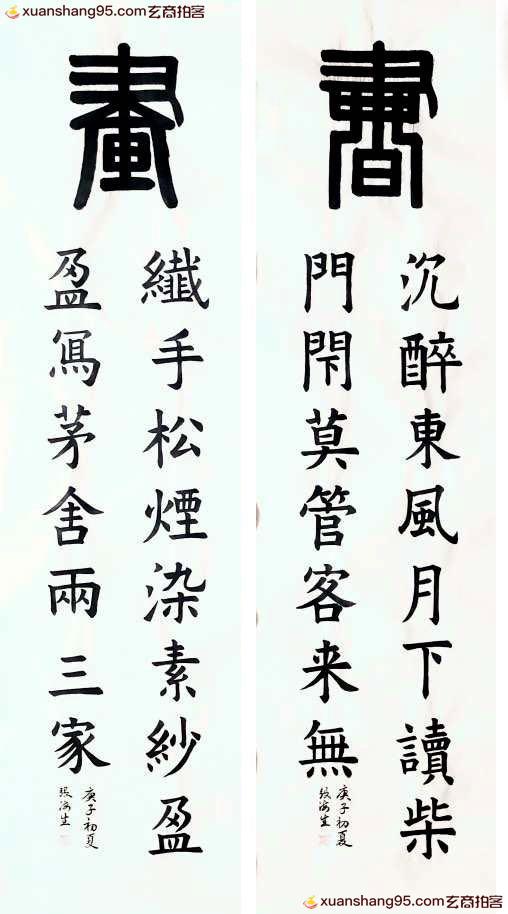 xuanshang95.com玄商拍客
xuanshang95.com玄商拍客
書
沉醉東風月下讀柴
門閇莫管客来無
庚子初夏
張海生
畫
纖手松煙染素紗盈
盈冩茅舍兩三家
庚子初夏
張海生
xuanshang95.com玄商拍客